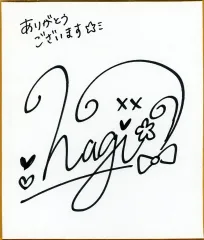 ありがとう
ございます☆彡
hagi